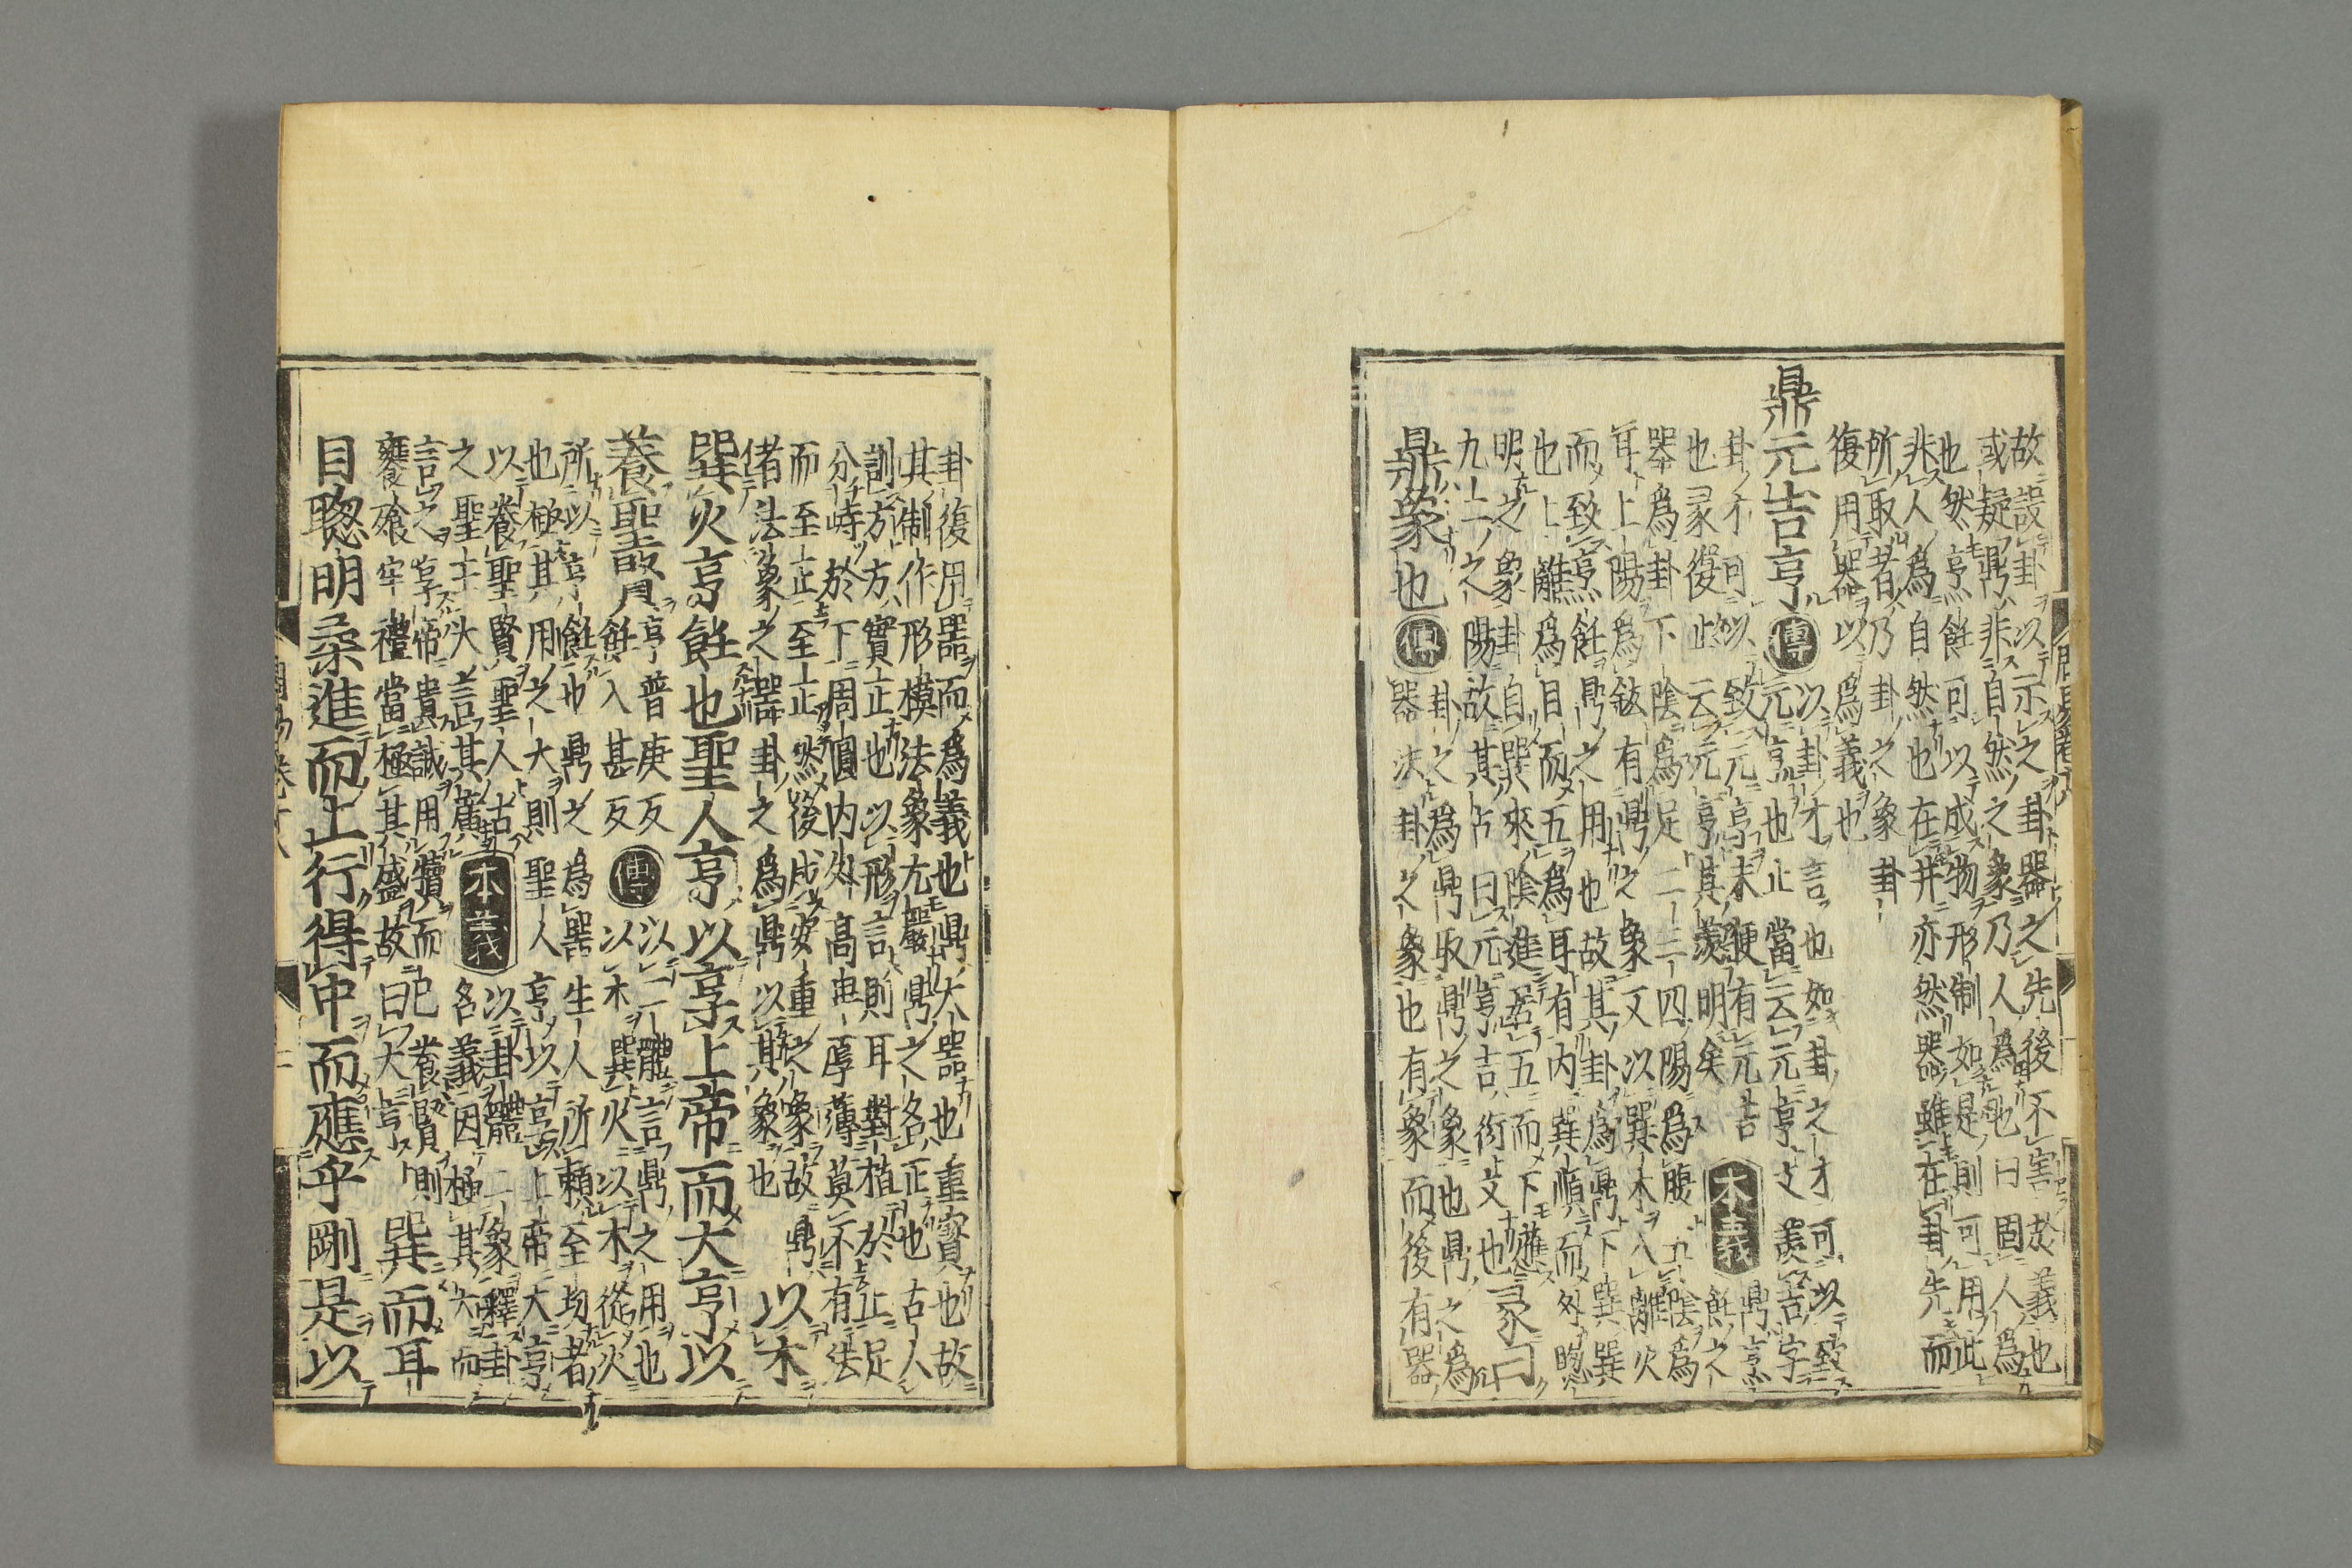 故設卦以示之卦器之先後不害於義也
或疑鼎非自然之象乃人爲也曰固人爲
也然烹飪可以成物形制如是則可用此
非人爲自然也在井亦然器雖在卦先而
所取者乃卦之象卦
復用器以爲義也
鼎元吉亨傳以卦才言也如卦之才可以致
元亨也止當云元亨文羨吉字
卦才可以致元亨未便有元吉
也彖復止云元亨其羨明矣本義鼎烹飪之
器爲卦下陰爲足二三四陽爲腹五陰爲
耳上陽爲鉉有鼎之象又以巽木入離火
而致烹飪鼎之用也故其卦爲鼎下巽巽
也上離爲目而五爲耳有内巽順而外聰
明之象卦自巽來陰進居五而下應
九二之陽故其占曰元亨吉衍文也彖曰
鼎象也傳卦之爲鼎取鼎之象也鼎之爲
器法卦之象也有象而後有器
卦復用器而爲義也鼎大器也重寶也故
其制作形模法象尤嚴鼎之名正也古人
訓方方實正也以形言則耳對植於上足
分峙於下周圓内外高卑厚薄莫不有法
而至正至正然後成安重之象故鼎
者法象之器卦之爲鼎以其象也以木
巽火亨飪也聖人亨以享上帝而大亨以
養聖賢亨普庚反飪入甚反傳以二體言鼎之用也
以木巽火以木從火
所以亨飪也鼎之爲器生人所頼至切者
也極其用之大則聖人亨以享上帝大亨
以養聖賢聖人古之聖王大言其廣本義以卦體二象釋卦
名義因極其大而
言之享帝貴誠用犢而已養賢則
饔飱牢禮當極其盛故曰大亨巽而耳
目聦明柔進而上行得中而應乎剛是以